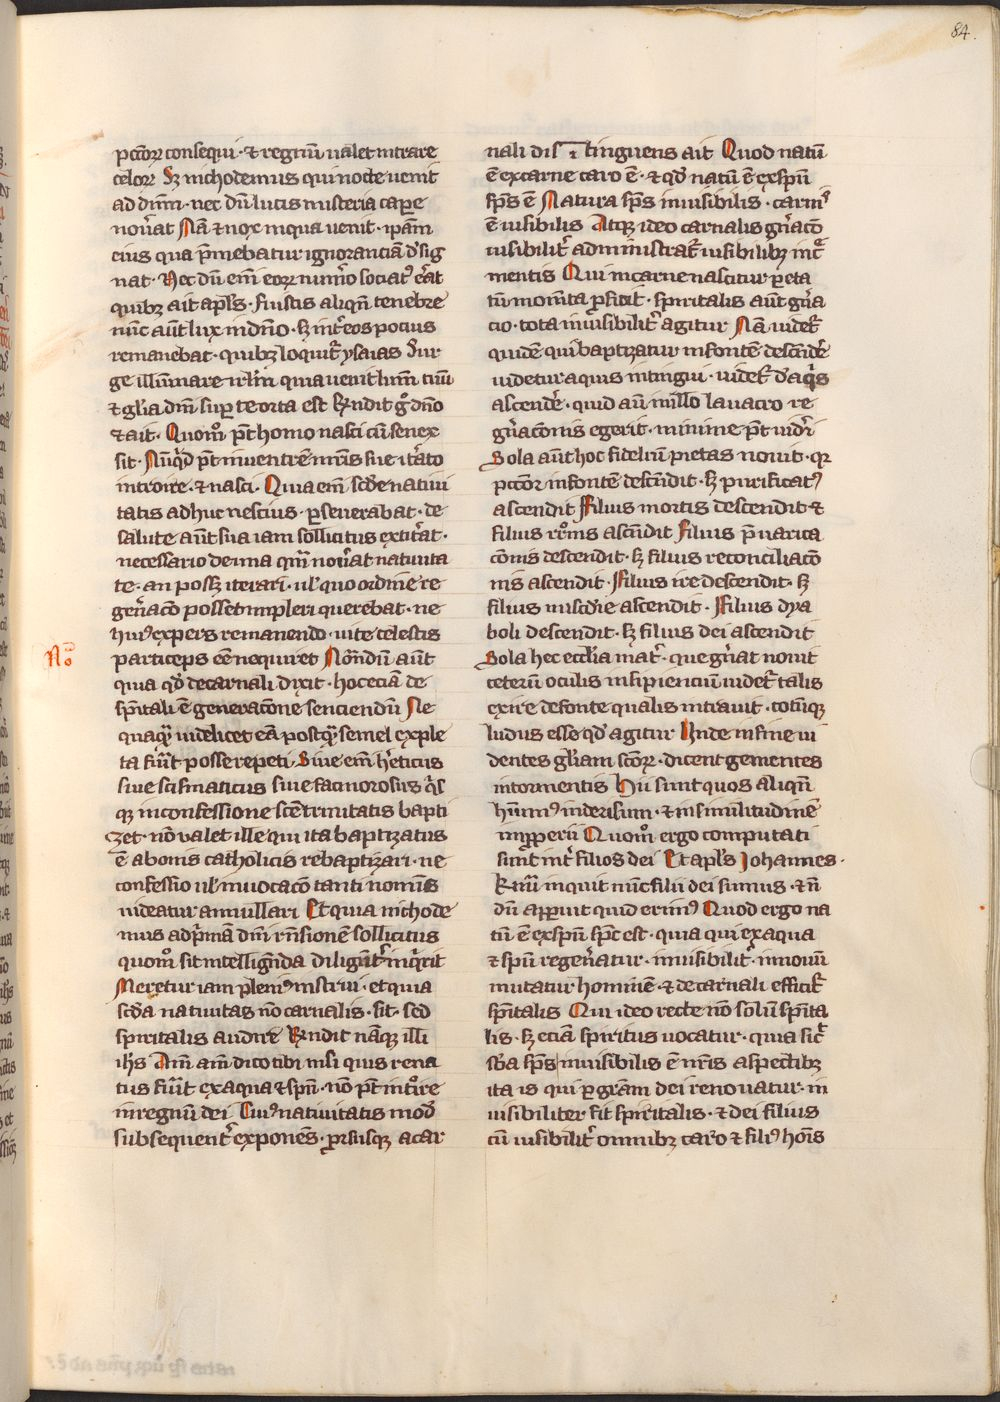 84.
pctōꝝ consequi · ⁊ regnū ualet intrare
celoꝝ Sꝫ nichodemus qui nocte uenit
ad dn̄m · nec dū lucis misteria capere
nou̓at Nā ⁊ nox in qua uenit · ipam̄
eius qua p̄mebatur ignoranciā d̓sig
nat · Nec dū em̄ eoꝝ num̓o sociatꝰ e̓at
quibꝫ ait apl̄s · Fuistis aliqn̄ tenebre
nūc aūt lux in dn̄o · sꝫ int̓ eos pocius
remanebat · quibꝫ loquit̄ ysaias Sur
ge illūinare irl̄m quia uenit lum̄ tuū
⁊ gl̄ia dn̄i suꝑ te orta est Rn̄dit g̊ dn̄o
⁊ ait · Quom̊ pt̄ homo nasci cū senex
sit · Nūqͥd pt̄ in uentrē mr̄is sue it̓ato
introire · ⁊ nasci · Quia em̄ scd̄e natiui
tatis adhuc nescius · ꝑseuerabat · de
salute aūt sua iam sollicitus extit̓at ·
necessario de una qm̄ nou̓at natiuita
te · an possꝫ iterari · ul̓ quo ordine re
gen̓acō posset impleri querebat · ne
huiꝰ expers remanendo · uite celestis
particeps eē nequiret Nōndū aūt
No
quia qd̓ de carnali dixit · hoc eciā de
sp̄itali ē generacōne senciendū Ne
quaqͣ uidelicet eā postqͣ semel exple
ta fūit posse repeti · Siue em̄ h̓eticus
siue scismaticus siue facinorosus qͥs
qꝫ in confessione scē trinitatis bapti
zet · nō ualet ille qui ita baptizatus
ē a bonis catholicis rebaptizari · ne
confessio ul̓ inuocacō tanti nominis
uideatur annullari Et quia nichode
mus ad pͥmā dn̄i rn̄sionē sollicitus
quom̊ sit intelligēda diligent̓ inqͥrit
Meretur iam pleniꝰ instrui · et quia
scd̄a natiuitas nō carnalis · sit · sed
spiritalis audire Rn̄dit nāqꝫ illi
ih̄s Am̄ am̄ dico tibi nisi quis rena
tus fūit ex aqua ⁊ spū · nō pt̄ int̊re
in regnū dei Cuiꝰ natiuitatis mod̄
subsequent̓ exponēs · ꝓrsusqꝫ a car
nali dis ⁊ tinguens ait Quod natū
ē ex carne caro ē · ⁊ qd̓ natū ē ex spū
sp̄s ē Natura sp̄s inuisibilis · carnis
ē uisibilis Atqꝫ ideo carnalis gn̓acō
uisibilit̓ administrat̄ uisibilibꝫ incͣ
mentis Qui in carne nascitur ꝑ eta
tū mom̄ta ꝓficit · spiritalis aūt gn̓a
cio · tota inuisibilit̓ agitur Nā uidet̄
quidē qui baptizatur in fontē descend̓e
uidetur aquis intingui · uidet̄ d̓ aqͥs
ascend̓e · quid aūt in illo lauacro re
gn̓aconis egerit · minime pt̄ uid̓i
Sola aūt hoc fideliū pietas nouit · qꝛ
pctōr in fontē descēdit · sꝫ purificatꝰ
ascendit Filius mortis descendit ⁊
filius rr̄mis ascēdit Filius p̄uarica
cōnis descendit · sꝫ filius reconciliacō
nis ascendit · Filius ire descendit · sꝫ
filius mis̄cdie ascendit · Filius dya
boli descendit · sꝫ filius dei ascendit
Sola hec eccl̄ia mat̓ · que gn̓at nouit
ceterū oculis insipienciū uidet̄ talis
exire de fonte qualis intrauit · totūqꝫ
ludus esse qd̓ agitur Unde in fine ui
dentes gl̄iam scōꝝ · dicent gementes
in tormentis Hii sunt quos aliqn̄
hūimꝰ in derisum · ⁊ in similitudinē
inꝓperii Quom̊ ergo computati
sunt int̓ filios dei Et apl̄s Johannes ·
Kmi inquit nūc filii dei sumus · ⁊ n̄
dū apparuit quid erimꝰ Quod ergo na
tū ē ex spū sp̄c est · quia qui ex aqua
⁊ spū regen̓atur · inuisibilit̓ · in nouū
mutatur hominē · ⁊ de carnali efficit̄
sp̄italis Qui ideo recte nō solū sp̄ita
lis · sꝫ eciā spiritus uocatur · quia sic̄
sb̓a sp̄s inuisibilis ē nr̄is aspectibꝫ
ita is qui ꝑ gr̄am dei renouatur · in
uisibiliter fit spiritalis · ⁊ dei filius
cū uisibilit̓ omnibꝫ caro ⁊ filiꝰ hōis